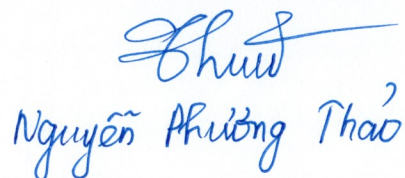 Nguyễn Phương Thảo